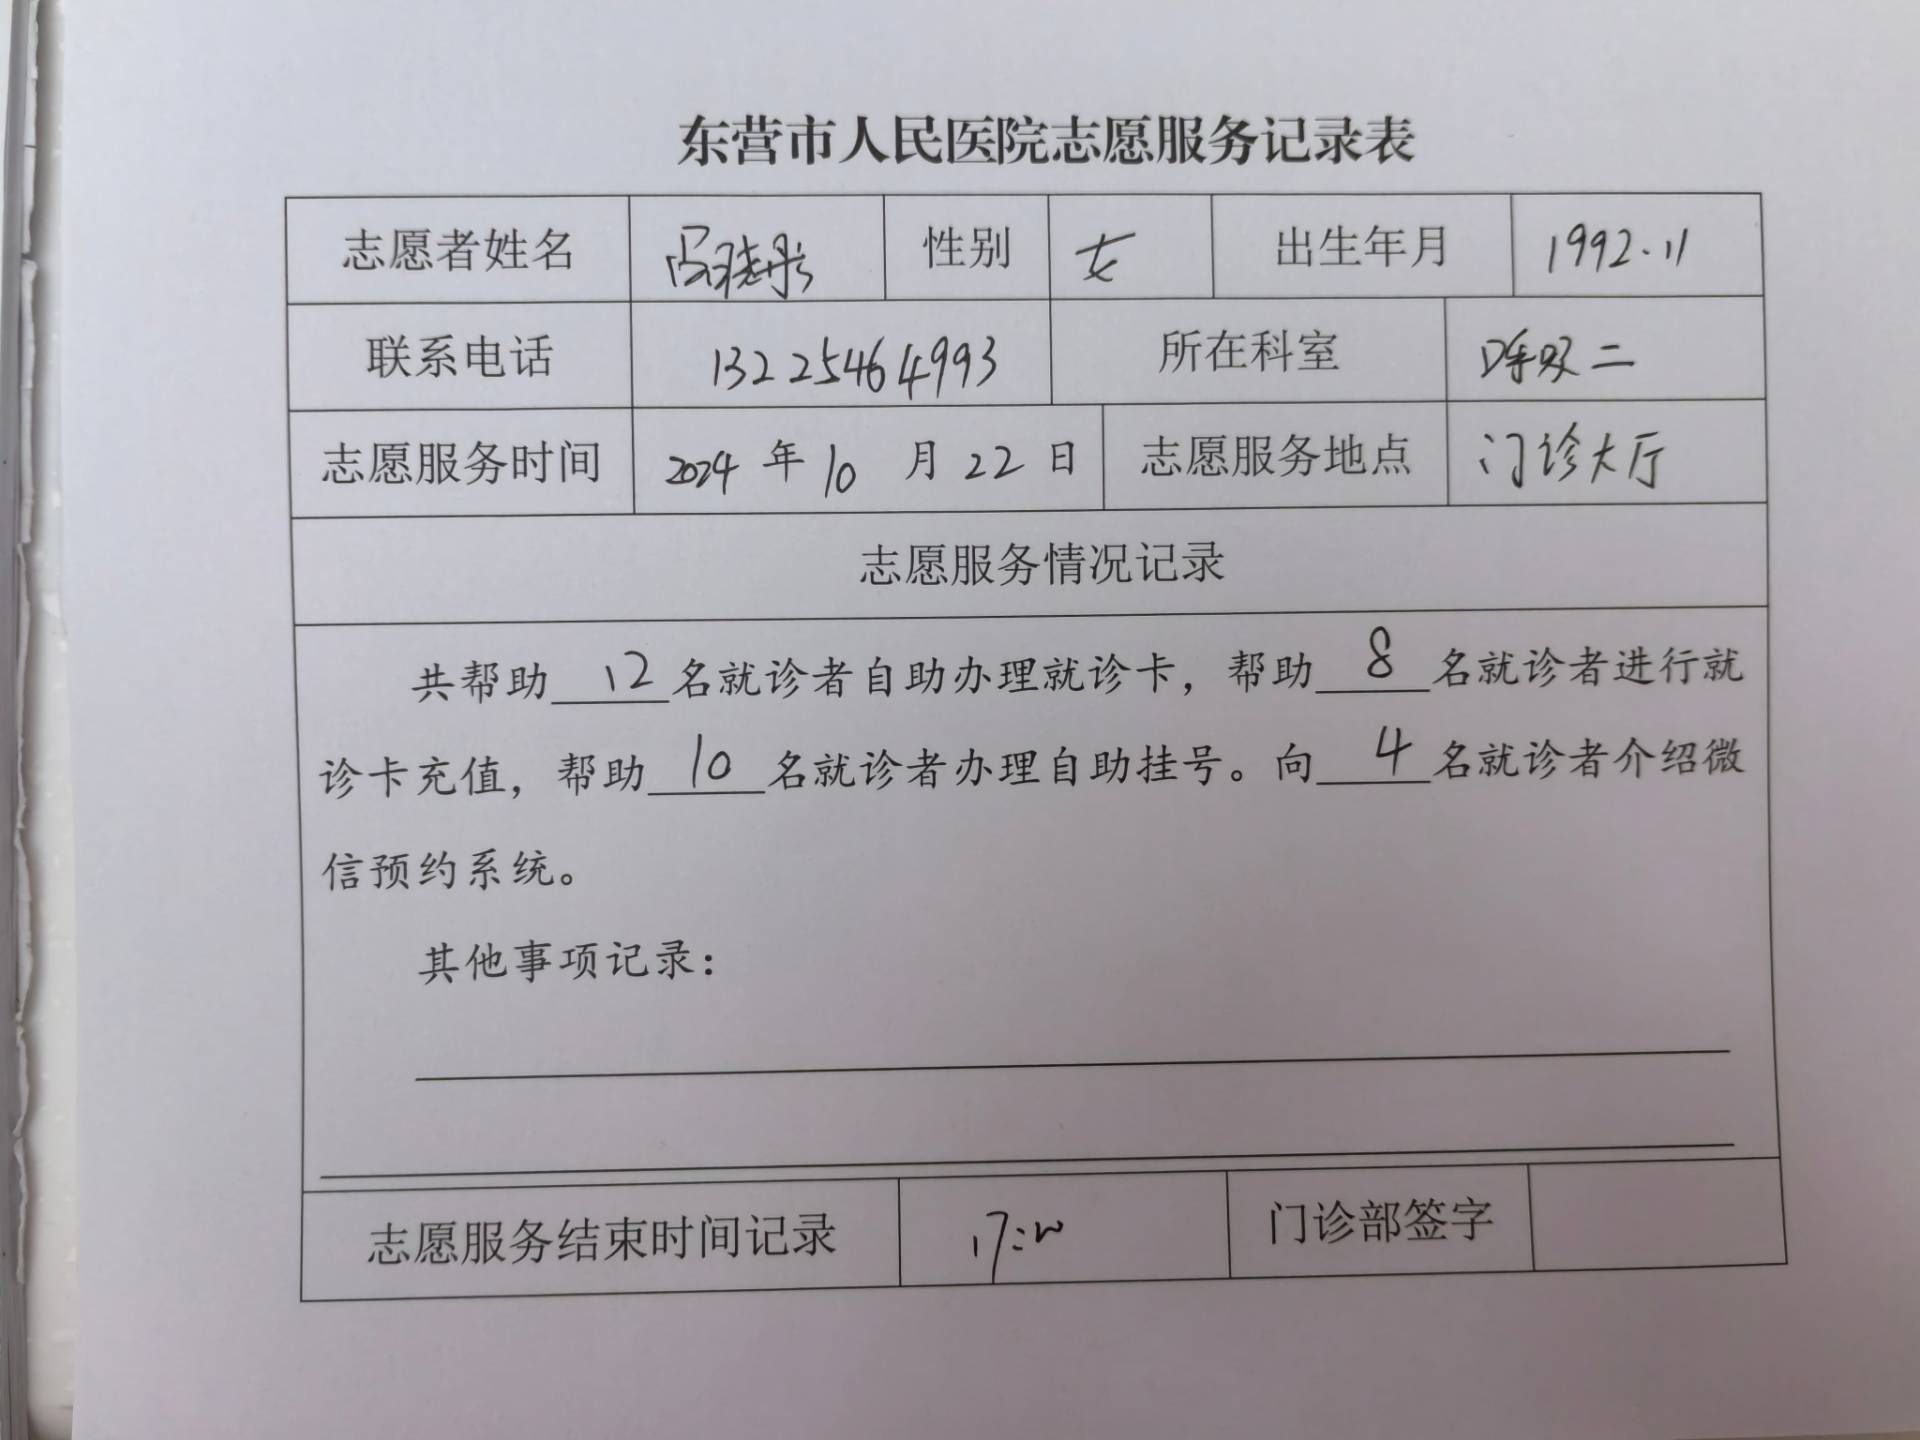 东营市人民医院志愿服务记录表
志愿者姓名 性别 女 出生年月 1992.11
联系电话 13225464993 所在科室 呼吸二
志愿服务时间 2024 年 10 月 22 日 志愿服务地点 门诊大厅
志愿服务情况记录
共帮助 12 名就诊者自助办理就诊卡，帮助 8 名就诊者进行就
诊卡充值，帮助 10 名就诊者办理自助挂号。向 4 名就诊者介绍微
信预约系统。
其他事项记录：
志愿服务结束时间记录 17:00 门诊部签字